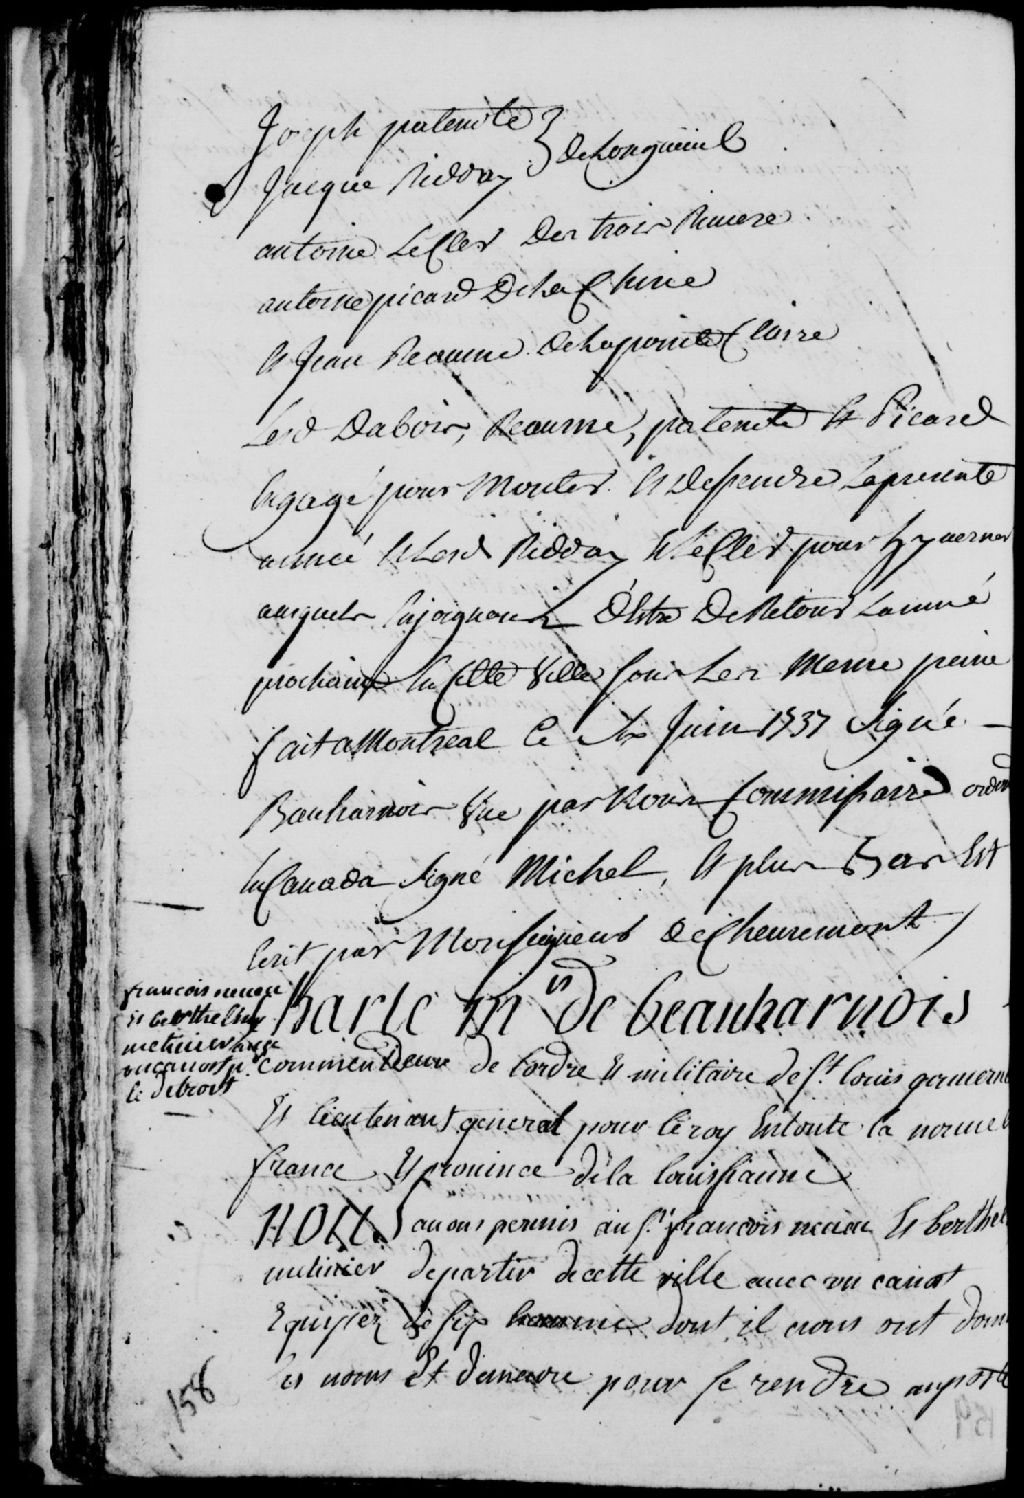 Joseph patenote
Jacque Ridday } de Longueuil
antoine LeCler Des trois Riviere
antoine picard De La Chine
Et Jean Reaume De La pointe Claire
Lesd Dabois, Reaume, patenote Et Picard
Engagé pour Monter Et Desendre La presente
année Et Lesd Ridday Et LeCler pour hyverner
ausquels Enjoignons D'Estre De Retour Lanné
prochaine En Cette Ville sous Les Meme peine
fait a Montreal Ce Juin 1737 Signé
Bauharnois Vue par Nous Commissaire ordon
En Canada Signé Michel, Et plus Bas Est
Ecrit par Monseigneur De Chevremont /
francois neveu
Et berthelemy
metiuier
un canost p.
le detroit
Charle m is de beauharnois
Commendeure de Lordre Et militaire de St. louis gouvern
Et lieutenant general pour le roy En toute la nouvel
france Et province de la louissianne
NOUS avons permis au Sr. francois neveu Et berthel
metivier de partir de cette ville avec un canost
Equipez de six homme dont il nous ont donn
les noms Et demeure pour se rendre au poste
158
159